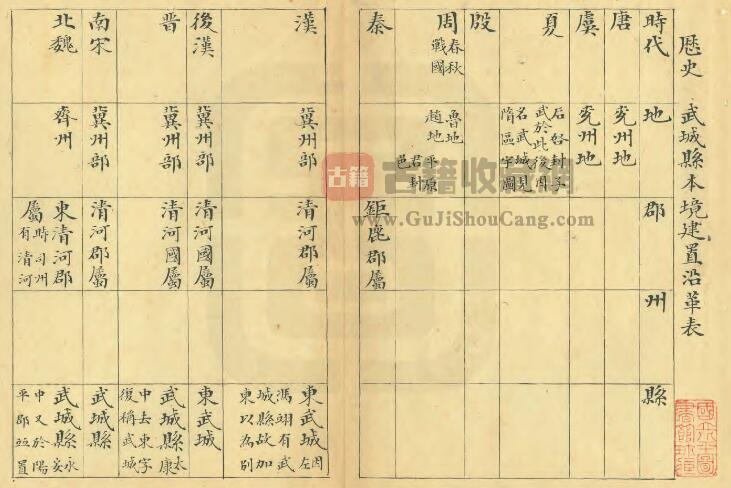 歷史 武城縣本境建置沿革表
時代 地 郡 州 縣
唐 兗州地
虞 兗州地
夏 后啓封子
武於此後因
名武城見
隋區宇圖
殷
周 春秋 魯地
戰國 趙地 平原
君封
邑
秦 鉅鹿郡屬
漢 冀州部 清河郡屬 東武城 因左
馮翊有武
城縣故加
東以為別
後漢 冀州部 清河國屬 東武城
晉 冀州部 清河國屬 武城縣 太康
中去東字
復稱武城
南宋 冀州部 清河郡屬 武城縣
北魏 齊州 東清河郡
屬 時司州
有清河
武城縣 永安
中又於陽
平郡並置
古籍 古籍收藏網
www.GuJiShouCang.com